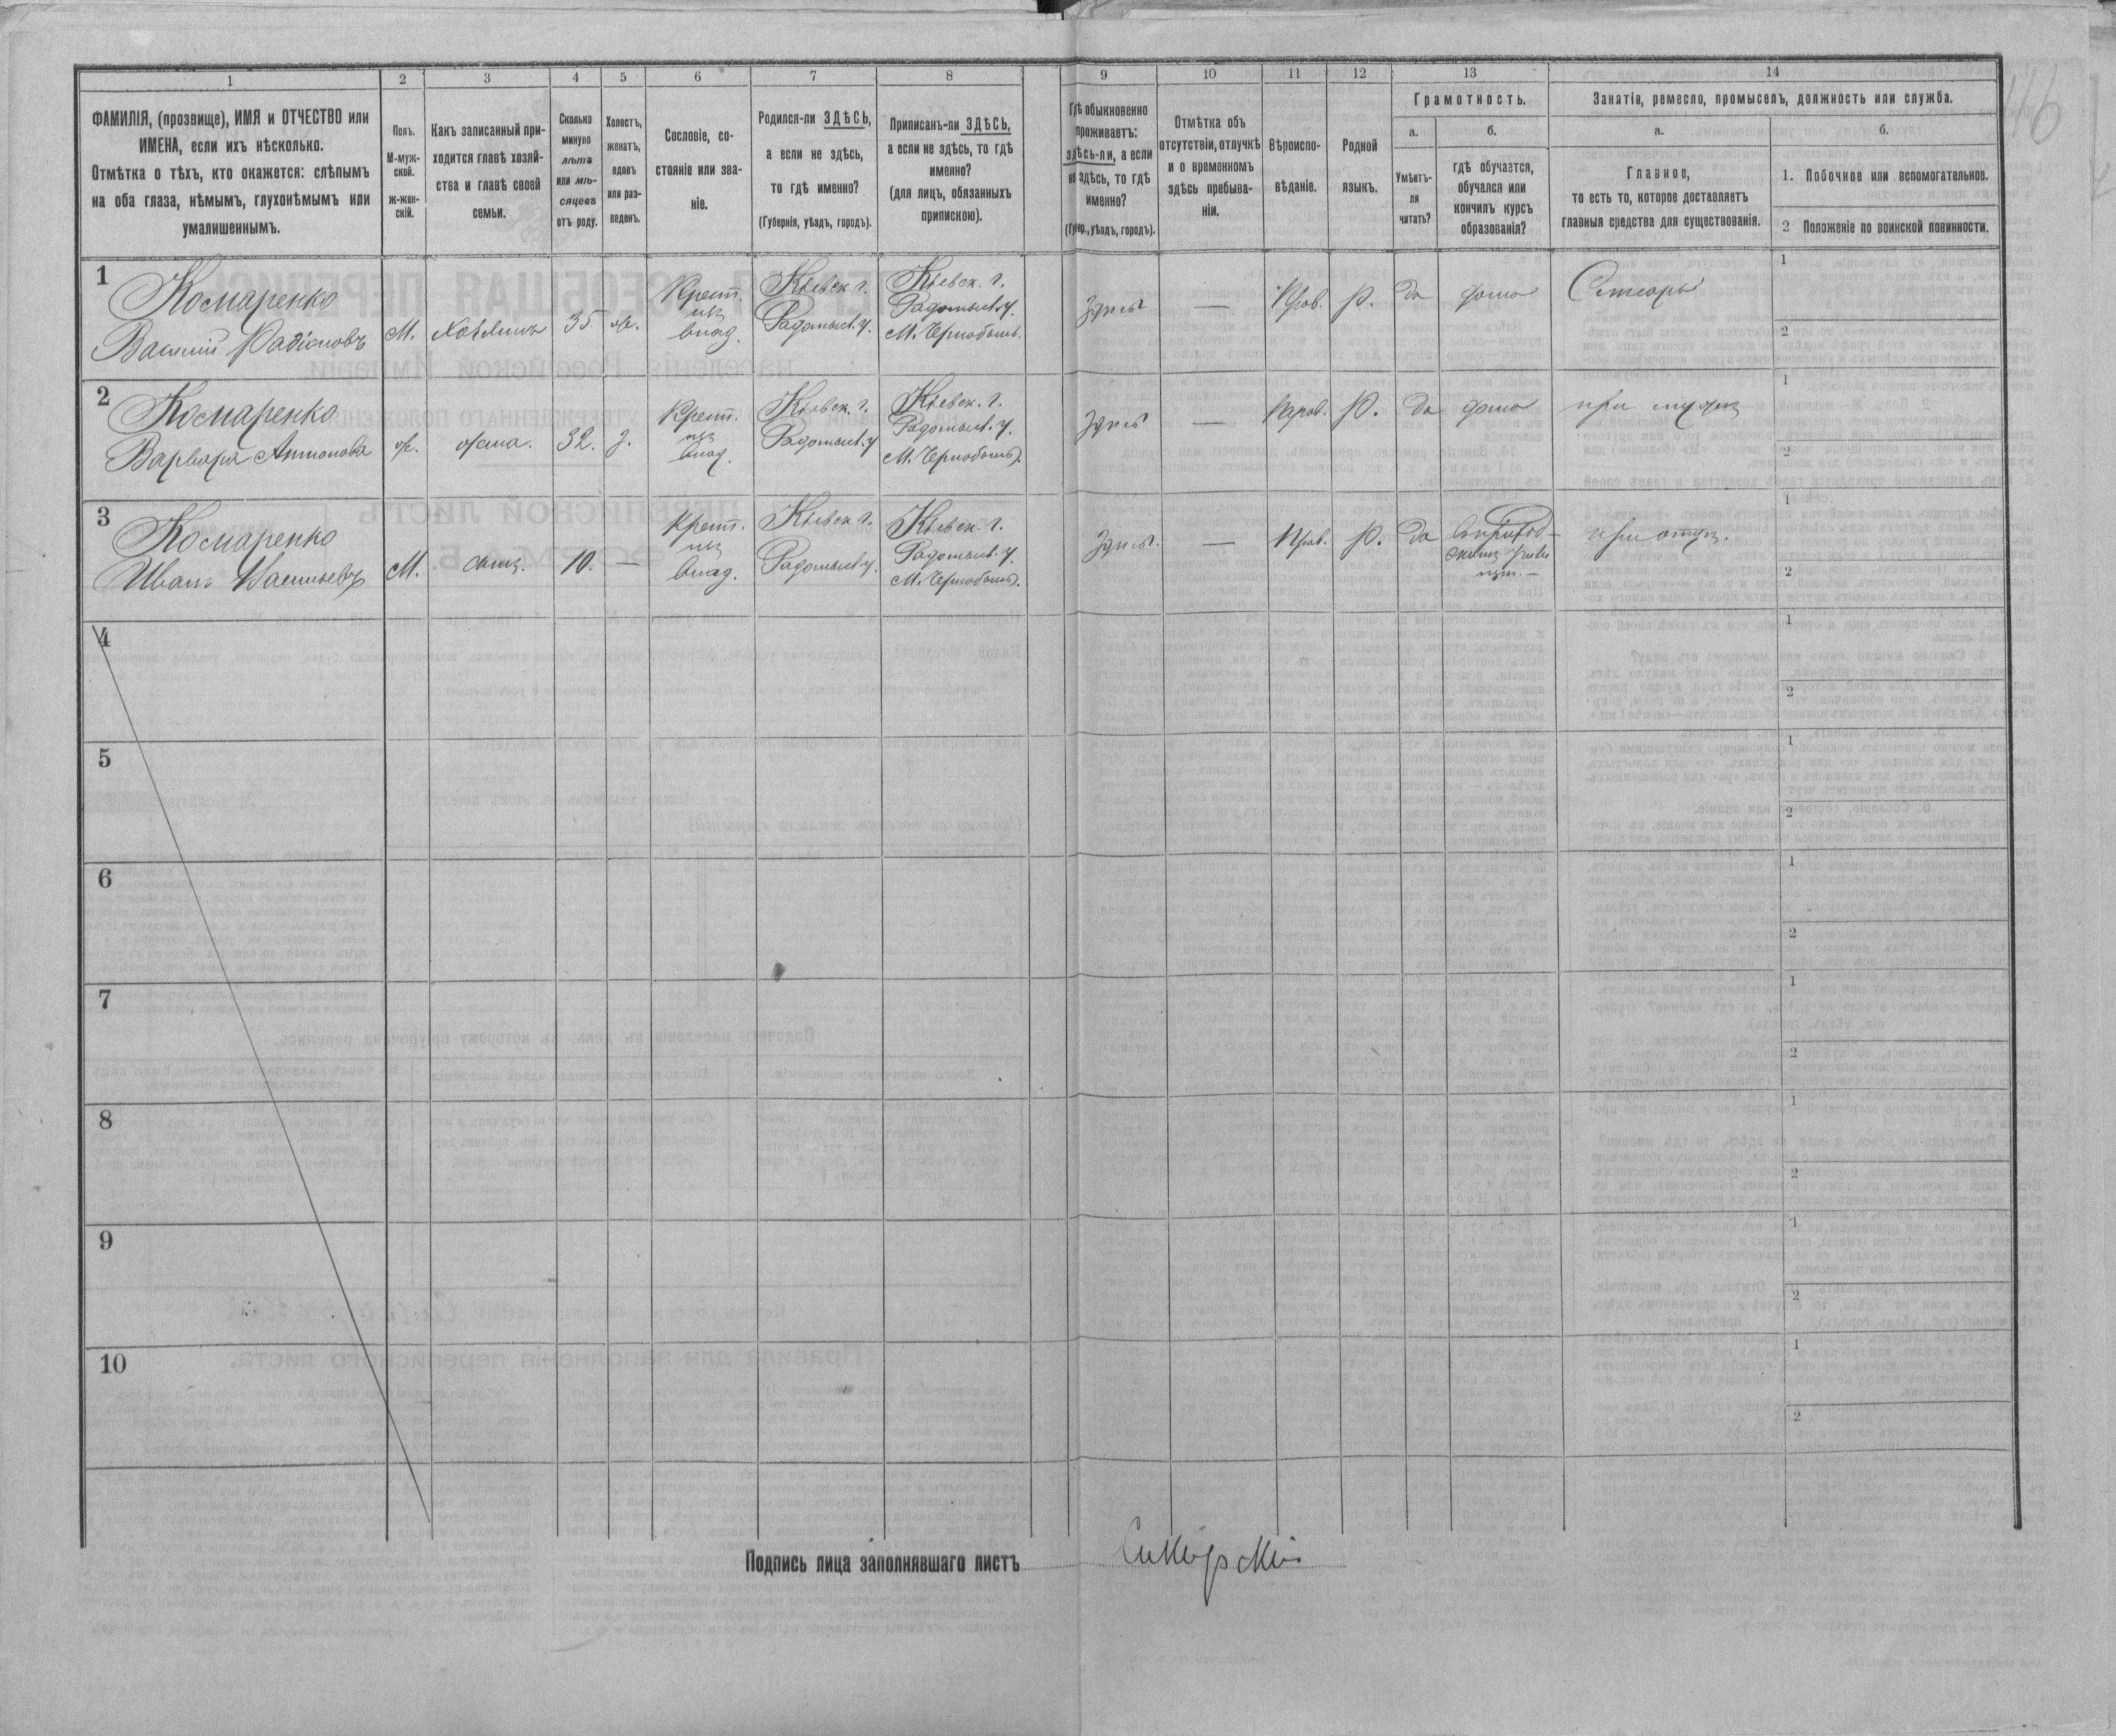 1 2 3 4 5 6 7 8 9 10 11 12 13 14
ФАМИЛІЯ, (прозвище), ИМЯ и ОТЧЕСТВО или
ИМЕНА, если ихъ нѣсколько.
Отмѣтка о тѣхъ, кто окажется: слѣпымъ
на оба глаза, нѣмымъ, глухонѣмымъ или
умалишеннымъ.
Полъ.
М-муж-
ской.
Ж-жен-
скій.
Какъ записанный при-
ходится главѣ хозяй-
ства и главѣ своей
семьи.
Сколько
минуло
лѣтъ
или мѣ-
сяцевъ
отъ роду.
Холостъ,
женатъ,
вдовъ
или раз-
веденъ.
Сословіе, со-
стояніе или зва-
ніе.
Родился-ли ЗДѢСЬ,
а если не здѣсь,
то гдѣ именно?
(Губернія, уѣздъ, городъ).
Приписанъ-ли ЗДѢСЬ,
а если не здѣсь, то гдѣ
именно?
(для лицъ, обязанныхъ
припискою).
Гдѣ обыкновенно
проживаетъ:
здѣсь-ли, а если
не здѣсь, то гдѣ
именно?
(Губер., уѣздъ, городъ).
Отмѣтка объ
отсутствіи, отлучкѣ
и о временномъ
здѣсь пребыва-
ніи.
Вѣроиспо-
вѣданіе.
Родной
языкъ.
Грамотность.
а.
Умѣетъ-
ли
читать?
б.
гдѣ обучается,
обучался или
кончилъ курсъ
образованія?
Занятіе, ремесло, промыселъ, должность или служба.
а.
Главное,
то есть то, которое доставляетъ
главныя средства для существованія.
б.
1. Побочное или вспомогательное.
2 Положеніе по воинской повинности.
1
Комаренко
Василій Радіоновъ
М.
Хозяинъ
35
ж.
Крест.
из
влад.
Кіевск. г.
Радомысл. у.
Кіевск. г.
Радомысл. у.
М. Чернобыль.
здѣсь
—
Прав.
р.
да
дома
Столяръ
1
2
2
Комаренко
Варвара Антонова
ж.
жена.
32.
з.
Крест.
из
влад.
Кіевск. г.
Радомысл. у
Кіевск. г.
Радомысл. у.
М. Чернобыль.
здѣсь
—
Прав.
р.
да
дома
при мужѣ
1
2
3
Комаренко
Иванъ Васильевъ
М.
сынъ.
10.
—
Крест.
из
влад.
Кіевск. г.
Радомысл. у.
Кіевск. г.
Радомысл. у.
М. Чернобыль.
здѣсь.
—
Прав.
р.
да
въ приход-
при отцѣ.
1
2
4
1
2
5
1
2
6
1
2
7
1
2
8
1
2
9
1
2
10
1
2
Подпись лица заполнявшаго листъ